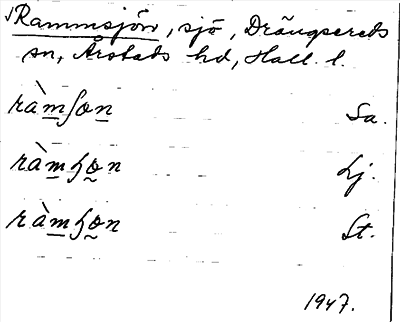 Rammsjön, sjö, Drängsereds
sn, Årstads hd, Hall. l.
ràmʃɷn Sa.
ràmȿɷn Lj.
ràmȿɷn St.
1947.